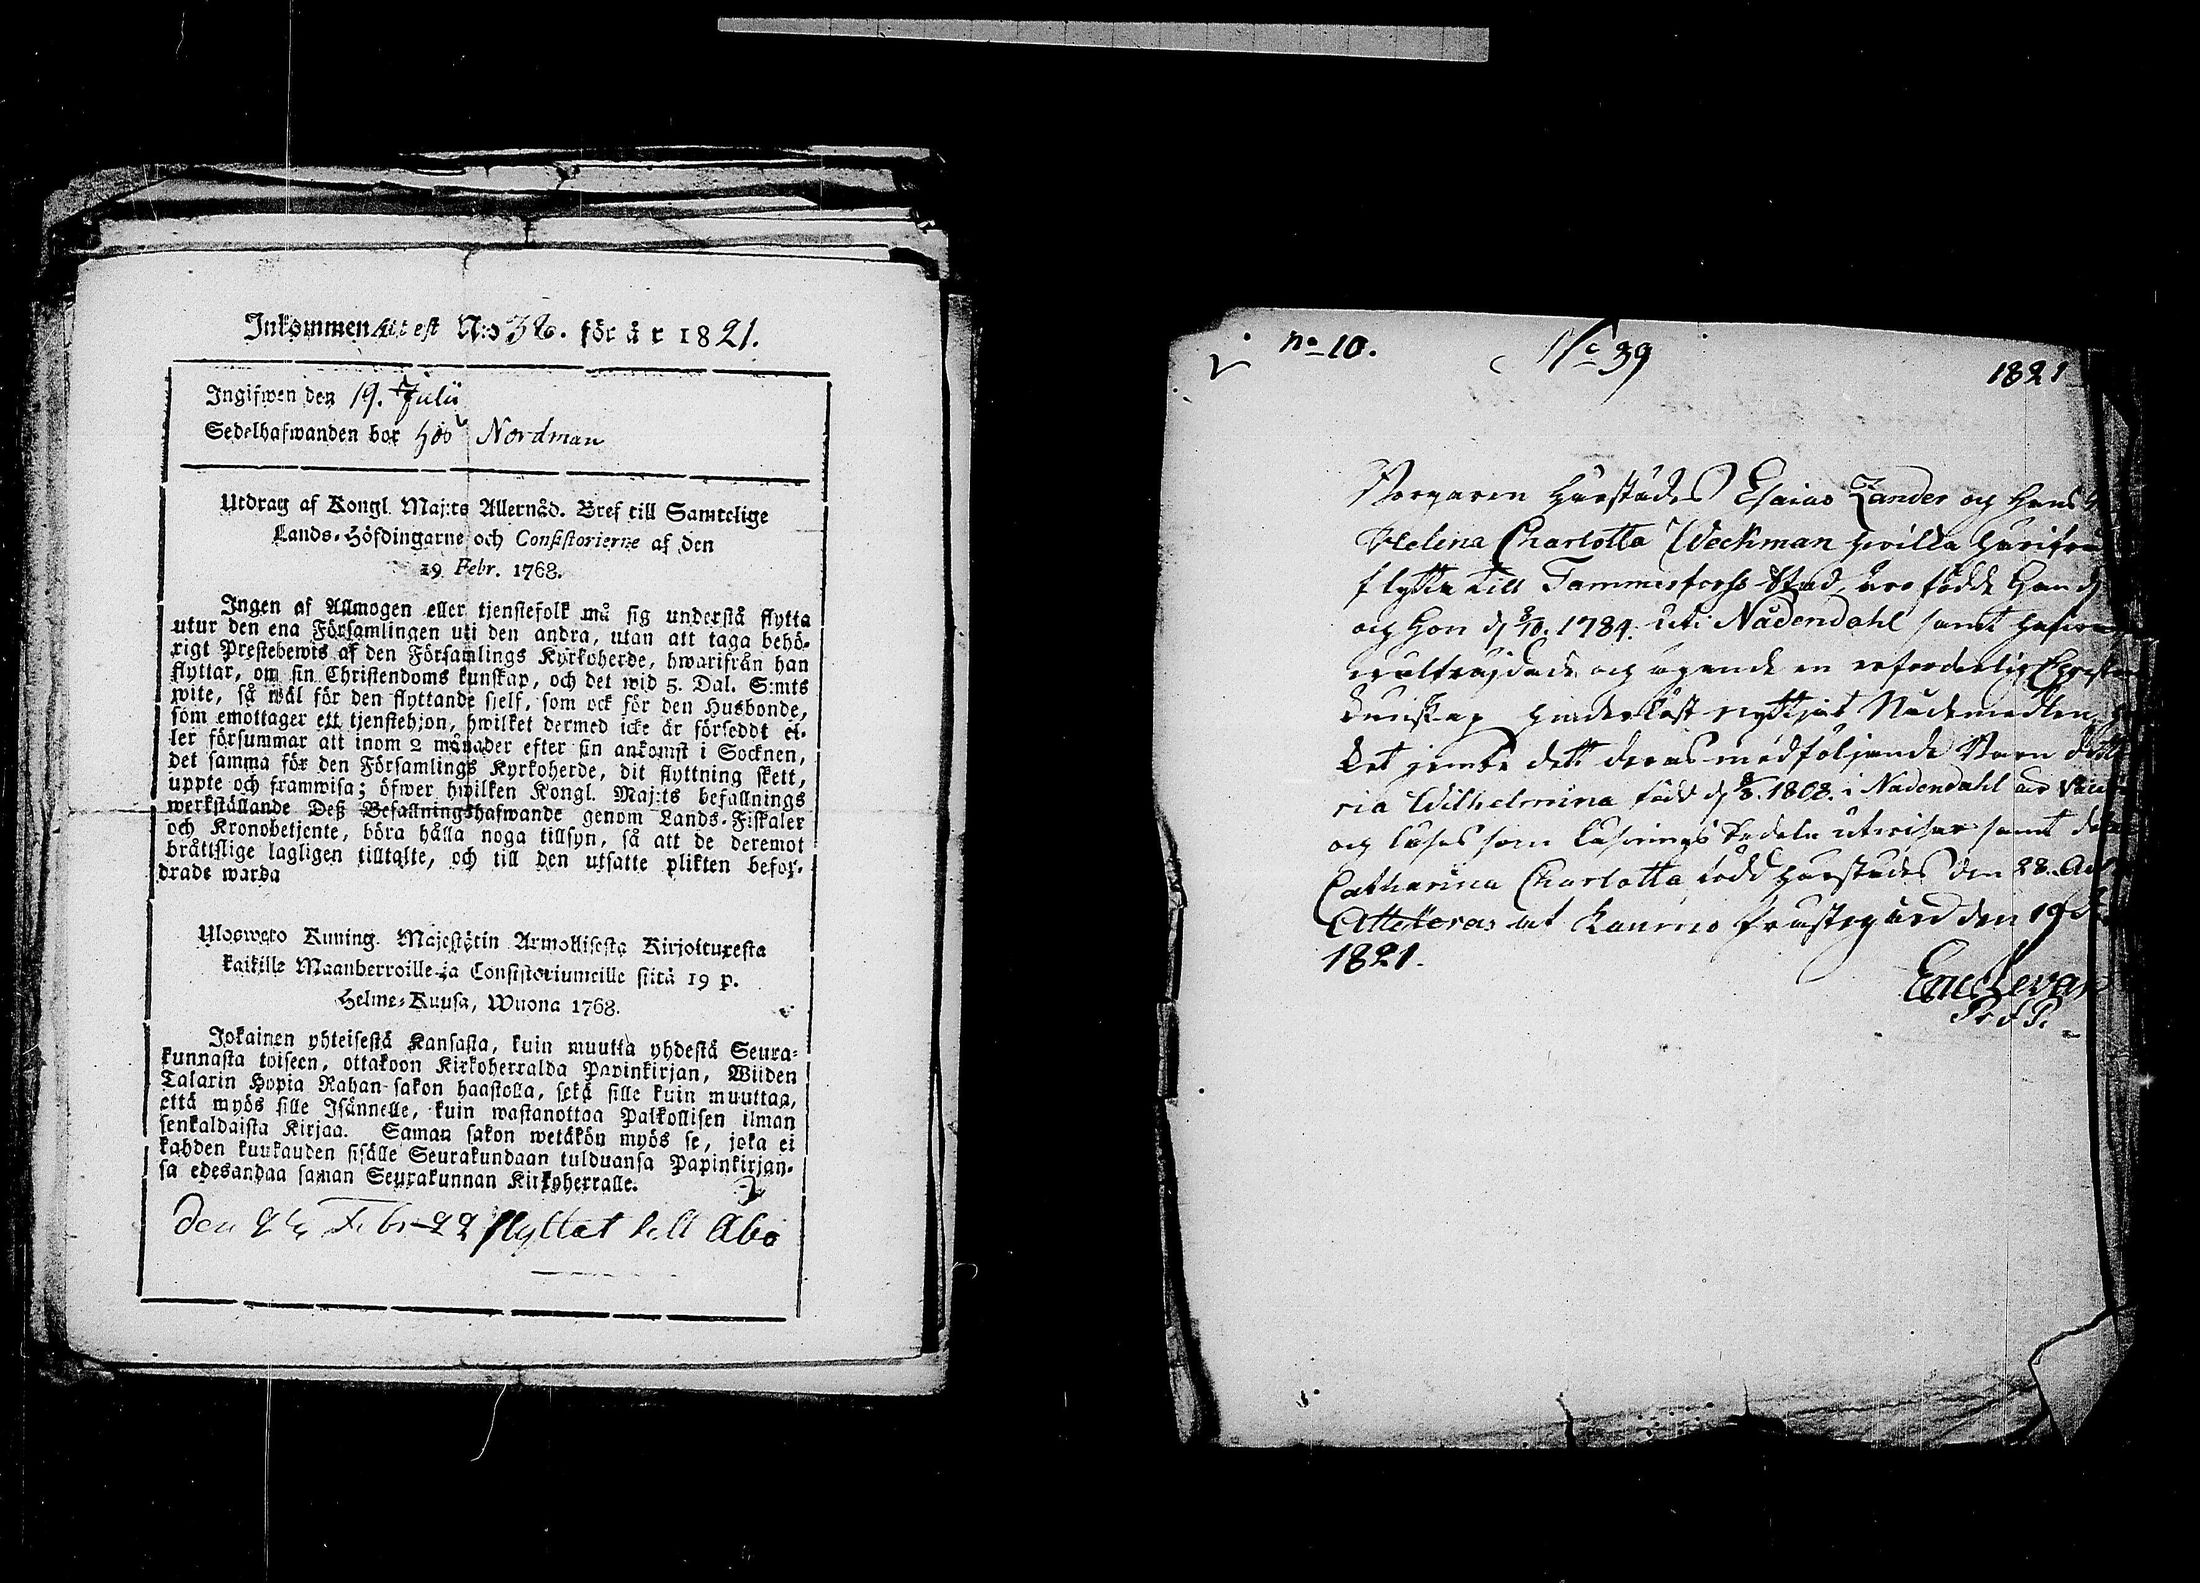 Inkommen Attest N:o 36. för år 1821.
Ingifwen den 19. Julii
Sedelhafwanden bor hos Nordman
Utdrag af Kongl. Maj:ts Allernåd. Bref till Samtelige
Lands-Höfdingarne och Consistorierne af den
19 Febr. 1768.
Ingen af Allmogen eller tjenstefolk må sig understå flytta
utur den ena Församlingen uti den andra, utan att taga behö-
rigt Prestebewis af den Församlings Kyrkoherde, hwarifrån han
flyttar, om sin Christendoms kunskap, och det wid 5. Dal. S:mts
wite, så wäl för den flyttande sjelf, som ock för den Husbonde,
som emottager ett tjenstehjon, hwilket dermed icke är förseddt el-
ler försummar att inom 2 månader efter sin ankomst i Socknen,
det samma för den Församlings Kyrkoherde, dit flyttning skett,
uppte och framwisa; öfwer hwilken Kongl. Maj:ts befallnings
werkställande Deß Befallningshafwande genom Lands-Fiskaler
och Kronobetjente, böra hålla noga tillsyn, så att de deremot
bråttslige lagligen tilltalte, och till den utsatte plikten befor-
drade warda
Ulosweto Kuning. Majestetin Armollisesta Kirjoituxesta
kaikille Maanherroille ja Consistoriumeille siitä 19 p.
Helme-Kuusa, Wuona 1768.
Jokainen yhteisestä Kansasta, kuin muutta yhdestä Seura-
kunnasta toiseen, ottakoon Kirkoherralda Papinkirjan, Wiiden
Talarin Hopia Rahan sakon haastolla, sekä sille kuin muuttaa,
että myös sille Isännelle, kuin wastanottaa Palkollisen ilman
senkaldaista Kirjaa. Saman sakon wetäkön myös se, joka ei
kahden kuukauden sisälle Seurakundaan tulduansa Papinkirjan-
sa edesandaa saman Seurakunnan Kirkoherralle.
den Febr 22 flyttat till Abo
no 10. No 39 1821
Borgaren härstädes Esaias Zander og hans
Helena Charlotta Weckman hvilka härifrå
flytta till Tammerforss Stad, äro födde han d
og hon d 8/10. 1784. uti Nådendahl samt
og ägande en erforderlig Christen
kunskap hinderlöst nyttjat Nådemedlen
Det deras medföljande Barn
ria Wilhelmina född d 1808. i Nådendahl är
og läses som Läsnings Sedeln utviser samt
Catharina Charlotta född härstädes den 28.
Attesteras ut Raumo Prustegård den 19
1821.